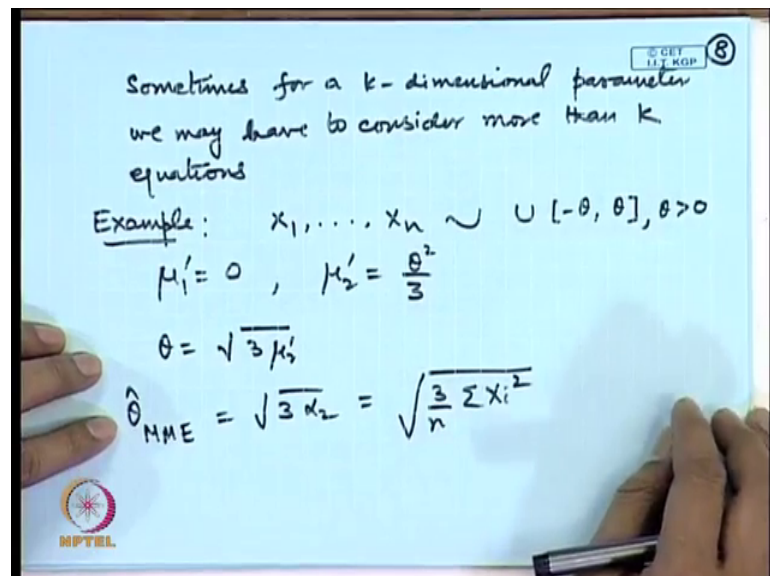 © CET
I.I.T. KGP
8
Sometimes for a k-dimensional parameter
we may have to consider more than k
equations
Example: X₁, . . . . Xₙ ~ U [-θ, θ], θ>0
μ₁' = 0 , μ₂' = θ²/3
θ = √(3 μ₂')
θ̂_MME = √(3 α₂) = √(3/n Σ Xᵢ²)
NPTEL